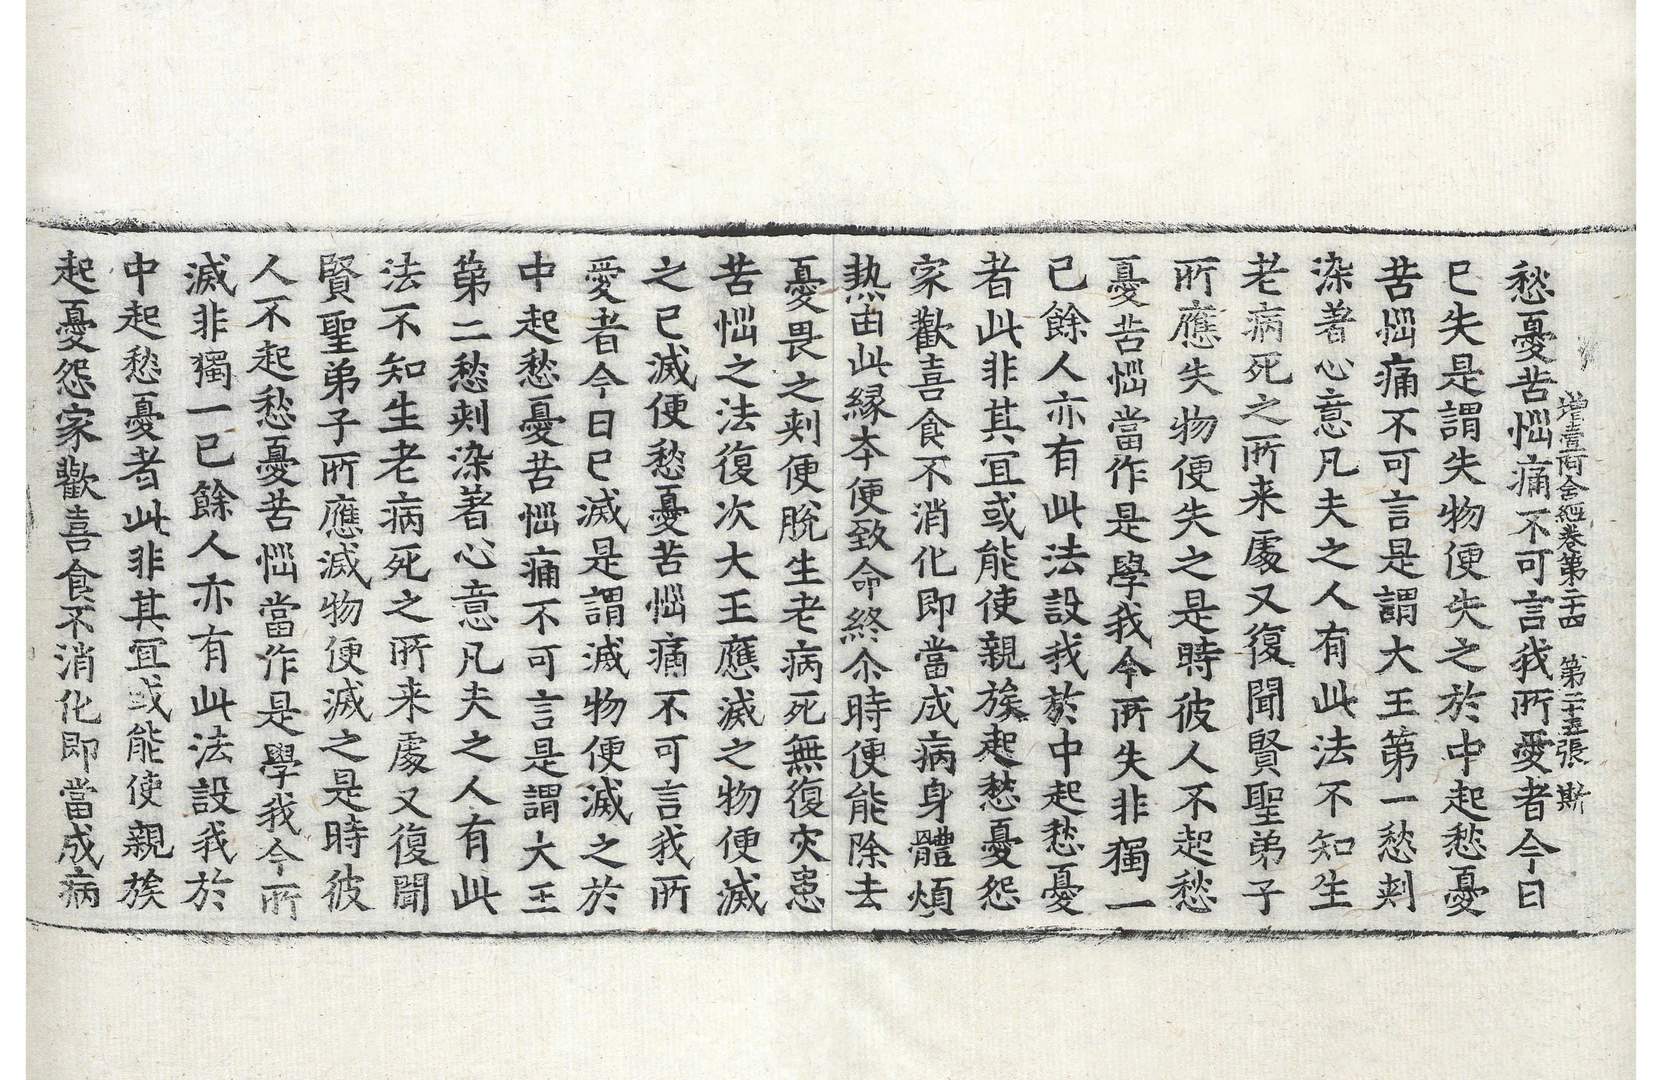 增壹阿含經卷第二十四　第二十五張　斯
愁憂苦惱痛不可言我所愛者今日
已失是謂失物便失之於中起愁憂
苦惱痛不可言是謂大王第一愁刺
染著心意凡夫之人有此法不知生
老病死之所来處又復聞賢聖弟子
所應失物便失之是時彼人不起愁
憂苦惱當作是學我今所失非獨一
已餘人亦有此法設我於中起愁憂
者此非其冝或能使親族起愁憂怨
家歡喜食不消化即當成病身體煩
熱由此縁夲便致命終尒時便能除去
憂畏之刺便脫生老病死無復灾患
苦惱之法復次大王應滅之物便滅
之已滅便愁憂苦惱痛不可言我所
愛者今日已滅是謂滅物便滅之於
中起愁憂苦惱痛不可言是謂大王
第二愁刺染著心意凡夫之人有此
法不知生老病死之所来處又復聞
賢聖弟子所應滅物便滅之是時彼
人不起愁憂苦惱當作是學我今所
滅非獨一已餘人亦有此法設我於
中起愁憂者此非其冝或能使親族
起憂怨家歡喜食不消化即當成病